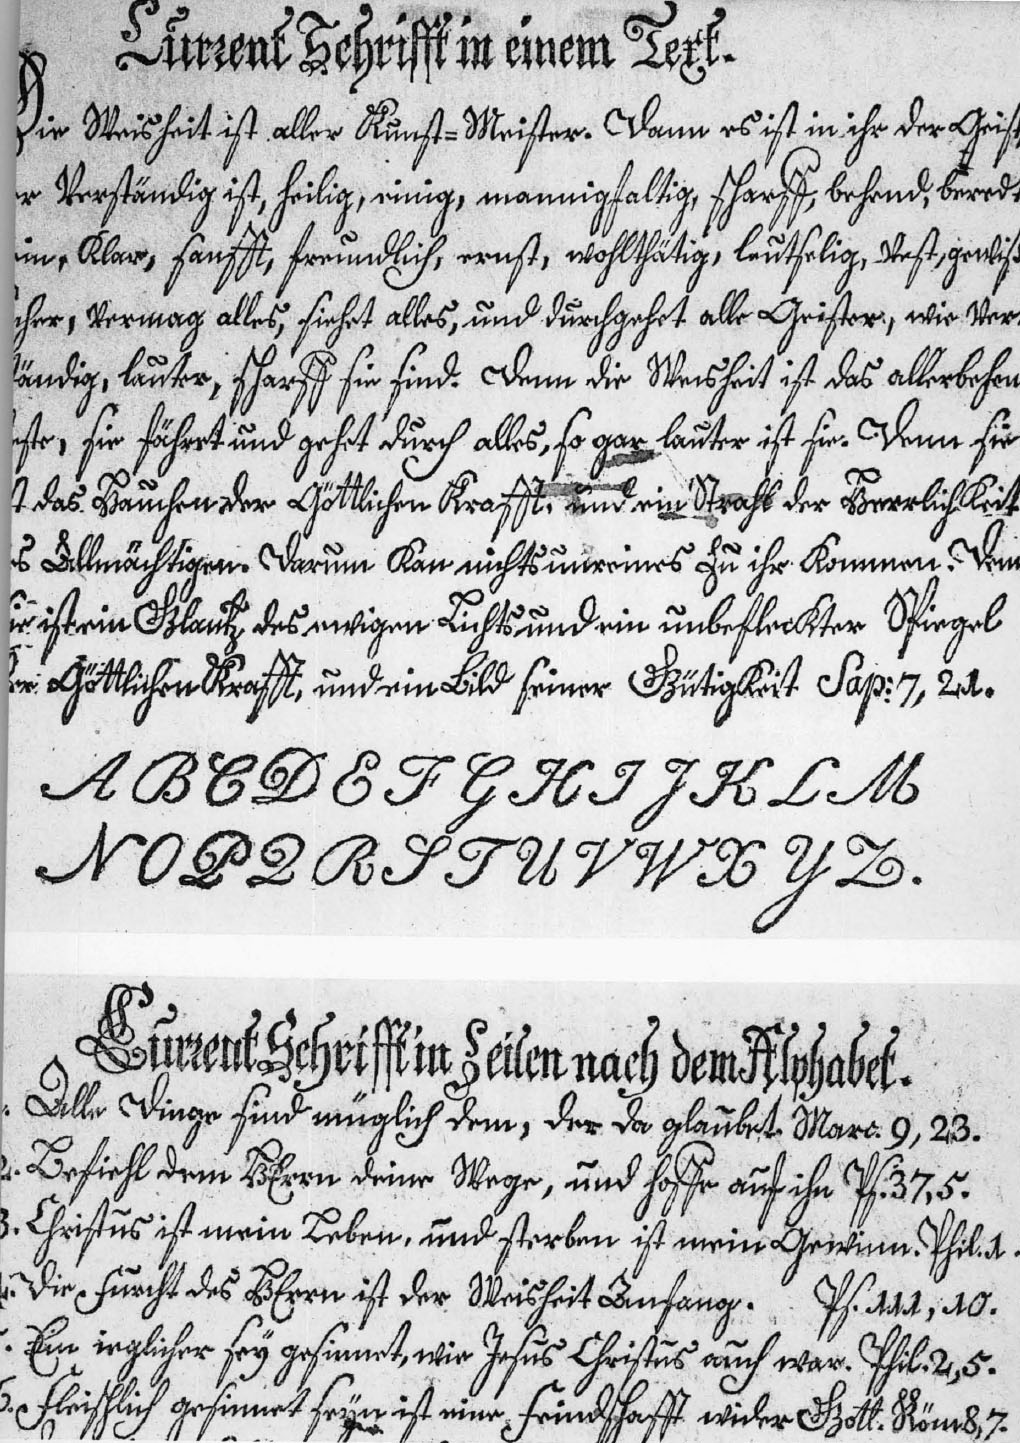 Current Schrifft in einem Text.
Die Weisheit ist aller Kunst=Meister. Dann es ist in ihr der Geist
er Verständig ist, heilig, einig, mannigfaltig, scharff, behend, beredt
ein, Klar, sanfft, freundlich, ernst, wohlthätig, leutselig, Vest, gewiß
cher, Vermag alles, siehet alles, und durchgehet alle Geister, wie Ver-
ständig, lauter, scharff sie sind. Denn die Weisheit ist das allerbehen
este, sie fähret und gehet durch alles, so gar lauter ist sie. Denn sie
st das Hauchen der Göttlichen Krafft. und ein Strahl der HerrlichKeit
s Allmächtigen. Darum Kan nichts unreines zu ihr Kommen. Denn
sie ist ein Glantz des ewigen Lichts und ein unbefleckter Spiegel
der Göttlichen Krafft, und ein Bild seiner GütigKeit Sap: 7, 21.
A B C D E F G H I J K L M
N O P Q R S T U V W X Y Z.
Current Schrifft in Zeilen nach dem Alphabet.
Alle Dinge sind müglich dem, der da glaubet. Marc. 9, 23.
2. Befiehl dem HErrn deine Wege, und hoffe auf ihn Ps. 37, 5.
3. Christus ist mein Leben, und sterben ist mein Gewinn. Phil. 1.
4. Die Furcht des HErrn ist der Weisheit Anfang. Ps. 111, 10.
5. Ein ieglicher sey gesinnet, wie Jesus Christus auch war. Phil. 2, 5.
6. Fleischlich gesinnet seyn ist eine Feindschafft wider Gott. Röm 8, 7.